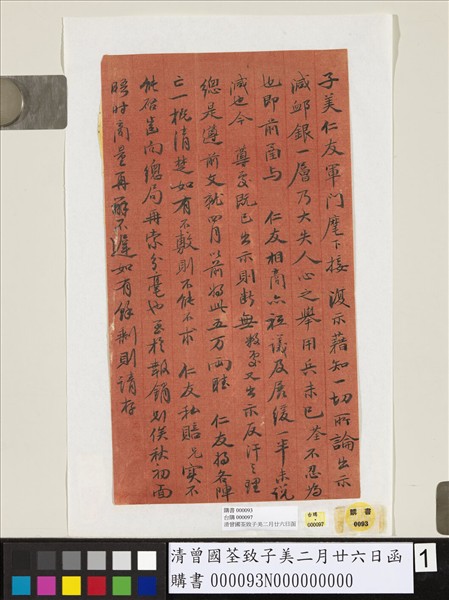 子美仁友軍門麾下接 復示藉知一切所論出示
減卹銀一層乃大失人心之舉用兵未已荃不忍為
也即前函與 仁友相商亦祇議及展緩半未說
減也今 尊處既已出示則斷無教又出示反汗之理
總是遵前文犹四月以前為此五万兩 仁友將各陣
亡一概清楚如有不敷則不能不 仁友私賠兄實不
能從 向總局再索分毫也至於報銷 俟秋初面
晤時商量再辭不遲如有餘剩則請存
購書 000093
台購 000097
清曾國荃致子美二月廿六日函
台購
000097
購書
0093
清曾國荃致子美二月廿六日函
購書 000093N000000000
1